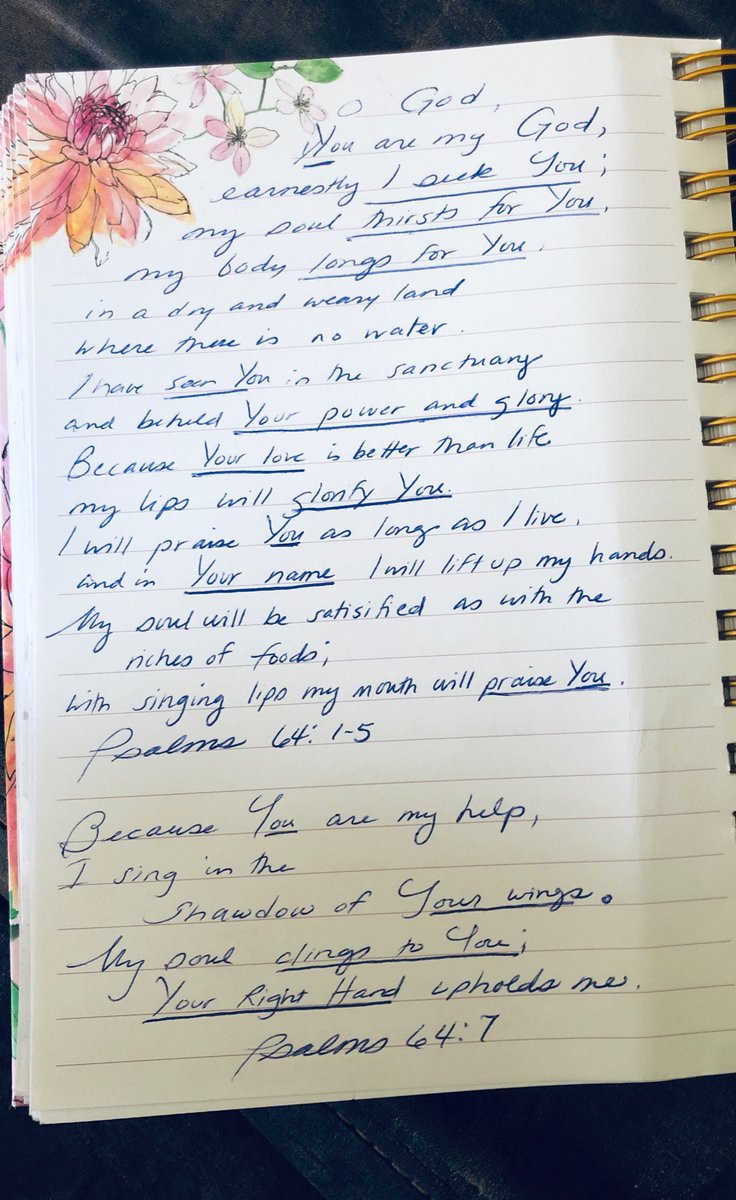 O God,
You are my God,
earnestly I seek You;
my soul thirsts for You,
my body longs for You,
in a dry and weary land
where there is no water.
I have seen You in the sanctuary
and beheld Your power and glory.
Because Your love is better than life
my lips will glorify You.
I will praise You as long as I live,
and in Your name I will lift up my hands.
My soul will be satisified as with the
riches of foods;
with singing lips my mouth will praise You.
Psalms 64: 1-5
Because You are my help,
I sing in the
Shawdow of Your wings.
My soul clings to You;
Your Right Hand upholds me.
Psalms 64:7